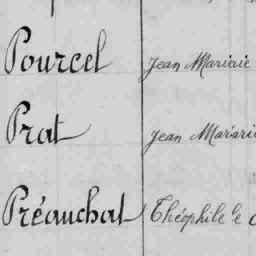 Pourcel Jean Mariaie
Prat Jean Mar
Préauchat Théophile